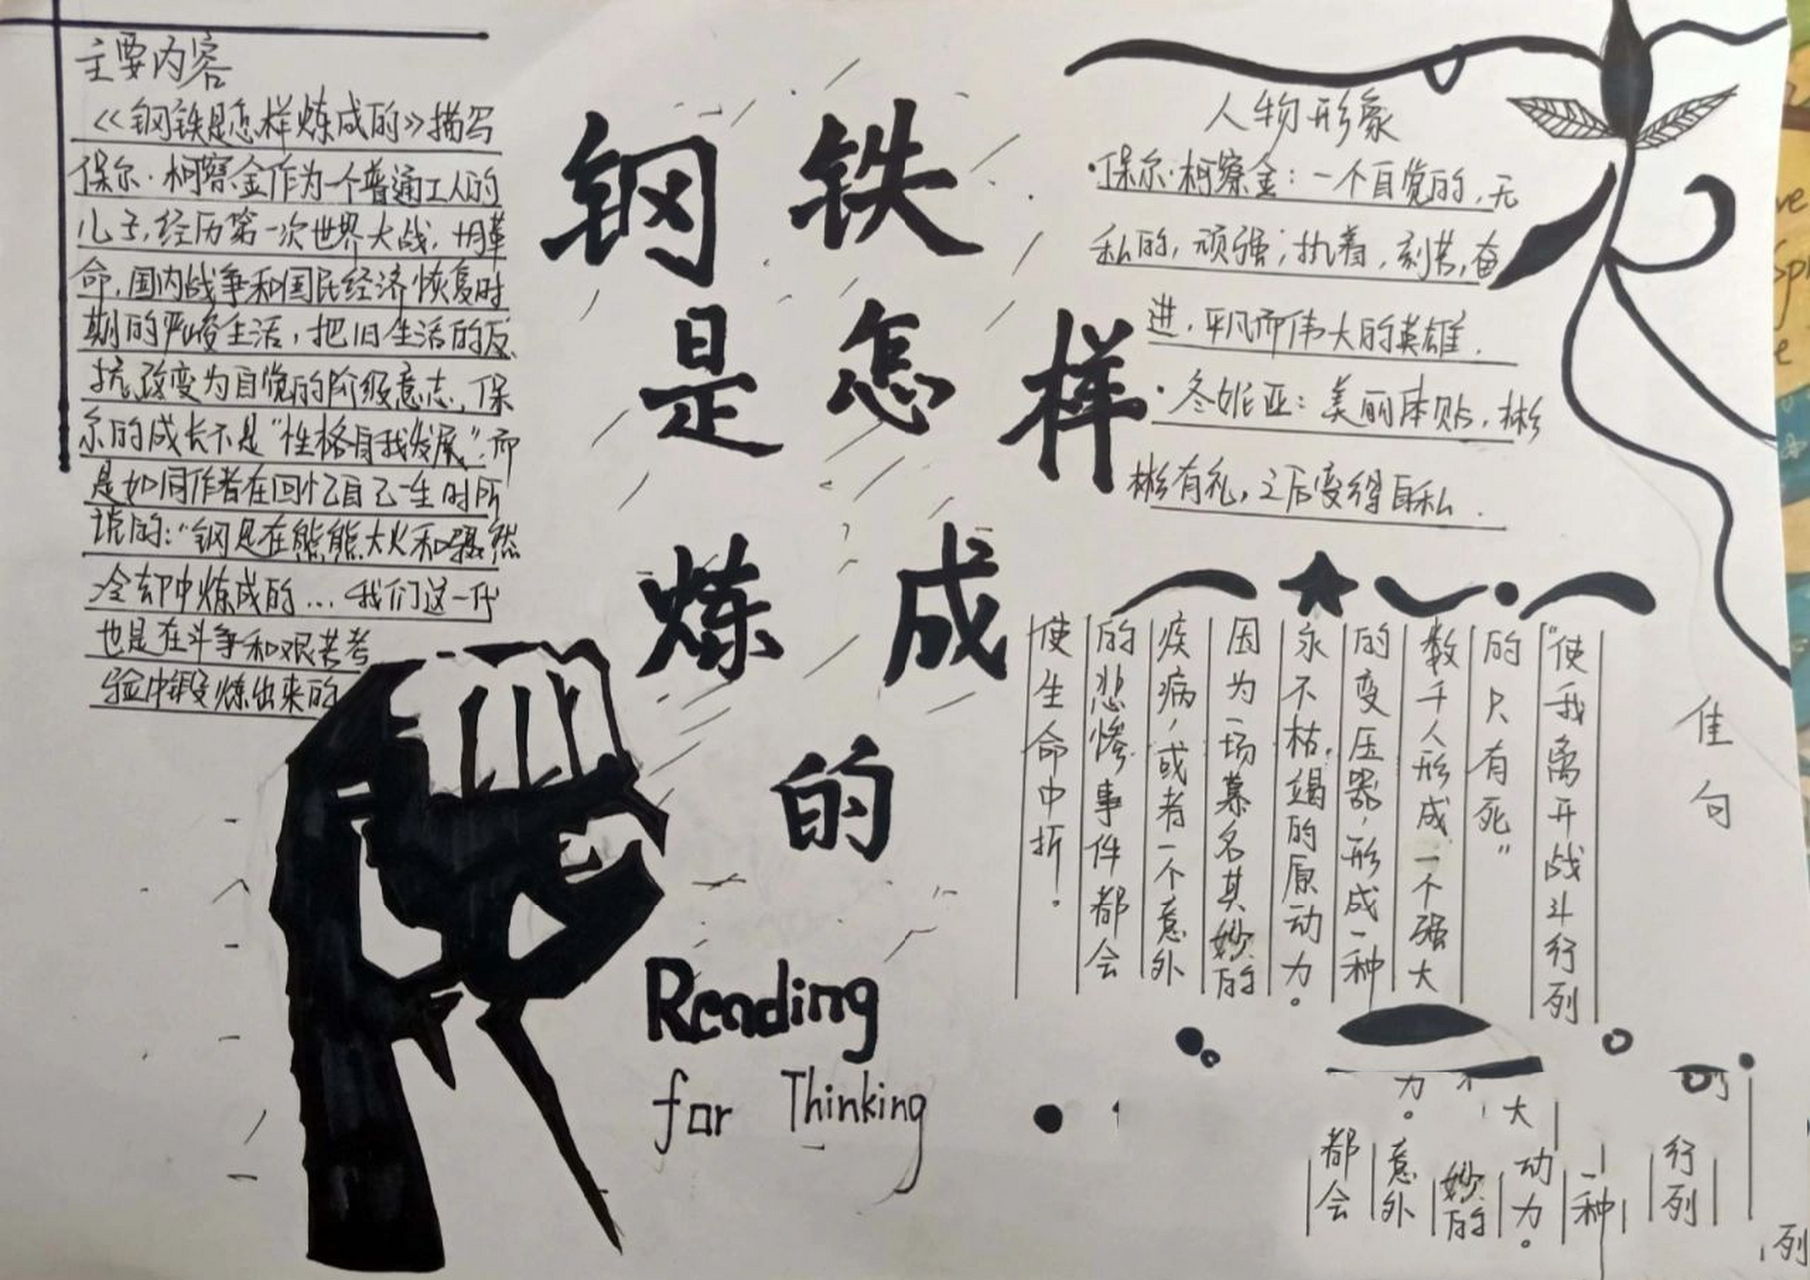 主要内容
《钢铁是怎样炼成的》描写
保尔·柯察金作为一个普通工人的
儿子,经历第一次世界大战,十月革
命,国内战争和国民经济恢复时
期的严峻生活,把旧生活的反
抗改变为自觉的阶级意志,保
尔的成长不是"性格自我发展",而
是如同作者在回忆自己一生时所
说的:"钢是在熊熊大火和骤然
冷却中炼成的...我们这一代
也是在斗争和艰苦考
验中锻炼出来的
钢铁
是怎样
炼成
的
Reading
for Thinking
人物形象
·保尔·柯察金:一个自觉的,无
私的,顽强;执着,刻苦,奋
进,平凡而伟大的英雄.
·冬妮亚:美丽体贴,彬
彬有礼,之后变得自私.
佳句
"使我离开战斗行列
的只有死"
数千人形成一个强大
的变压器,形成一种
永不枯竭的原动力。
因为一场莫名其妙的
疾病,或者一个意外
的悲惨事件都会
使生命中折!
力。
大
都会
意外
妙的
动力。
一种
行列
列